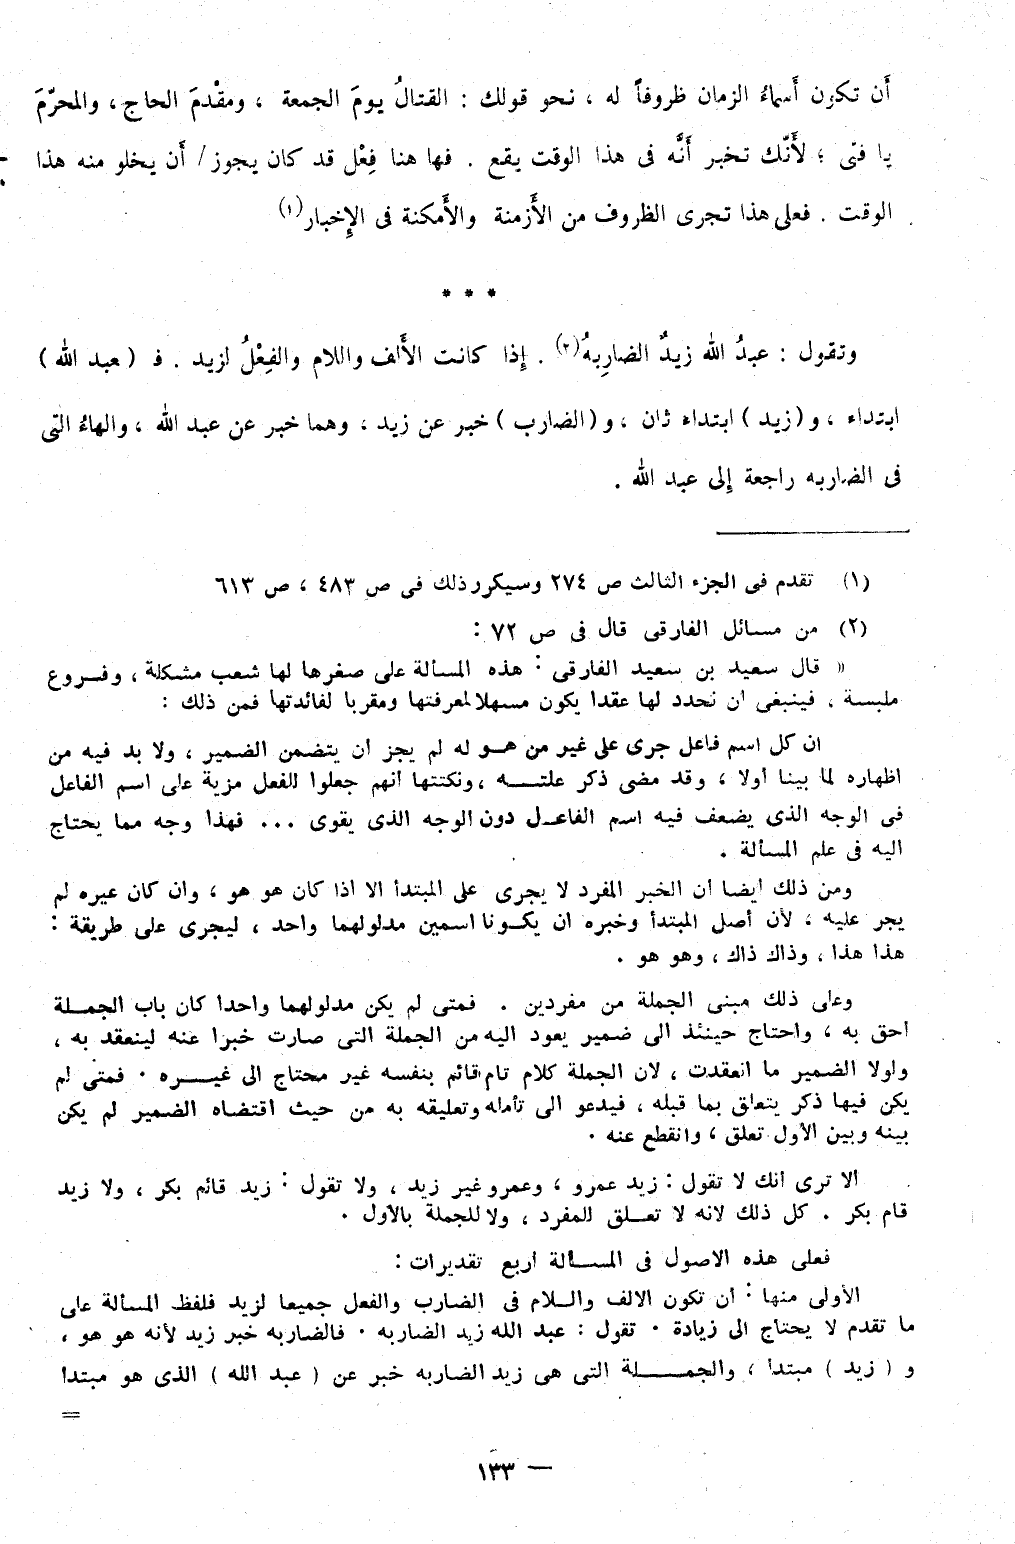 أَن تكون أَسماءُ الزمان ظروفاً له ، نحو قولك : القتالُ يومَ الجمعة ، ومقْدمَ الحاج ، والمحرّمَ
يا فتى ؛ لأَنَّك تخبر أَنَّه فى هذا الوقت يقع . فها هنا فِعْل قد كان يجوز / أَن يخلو منه هذا
الوقت . فعلى هذا تجرى الظروف من الأَزمنة والأَمكنة فى الإِخبار (١)
* * *
وتقول : عبدُ الله زيدٌ الضارِبهُ (٢) . إِذا كانت الأَلف واللام والفِعْلُ لزيد . فـ ( عبد الله )
ابتداء ، و ( زيد ) ابتداء ثان ، و ( الضارب ) خبر عن زيد ، وهما خبر عن عبد الله ، والهاءُ التى
فى الضاربه راجعة إِلى عبد الله .
(١) تقدم فى الجزء الثالث ص ٢٧٤ وسيكرر ذلك فى ص ٤٨٣ ، ص ٦١٣
(٢) من مسائل الفارقى قال فى ص ٧٢ :
« قال سعيد بن سعيد الفارقى : هذه المسألة على صغرها لها شعب مشكلة ، وفروع
ملبسة ، فينبغى أن نحدد لها عقدا يكون مسهلا لمعرفتها ومقربا لفائدتها فمن ذلك :
ان كل اسم فاعل جرى على غير من هو له لم يجز أن يتضمن الضمير ، ولا بد فيه من
اظهاره لما بينا أولا ، وقد مضى ذكر علته ، ونكتتها أنهم جعلوا للفعل مزية على اسم الفاعل
فى الوجه الذى يضعف فيه اسم الفاعل دون الوجه الذى يقوى ... فهذا وجه مما يحتاج
اليه فى علم المسألة .
ومن ذلك أيضا أن الخبر المفرد لا يجرى على المبتدأ الا اذا كان هو هو ، وان كان غيره لم
يجر عليه ، لأن أصل المبتدأ وخبره ان يكونا اسمين مدلولهما واحد ، ليجرى على طريقة :
هذا هذا ، وذاك ذاك ، وهو هو .
وعلى ذلك مبنى الجملة من مفردين . فمتى لم يكن مدلولهما واحدا كان باب الجملة
أحق به ، واحتاج حينئذ الى ضمير يعود اليه من الجملة التى صارت خبرا عنه لينعقد به ،
ولولا الضمير ما انعقدت ، لان الجملة كلام تام قائم بنفسه غير محتاج الى غيره . فمتى لم
يكن فيها ذكر يتعلق بما قبله ، فيدعو الى تأمله وتعليقه به من حيث اقتضاه الضمير لم يكن
بينه وبين الأول تعلق ، وانقطع عنه .
ألا ترى أنك لا تقول : زيد عمرو ، وعمرو غير زيد ، ولا تقول : زيد قائم بكر ، ولا زيد
قام بكر . كل ذلك لانه لا تعلق للمفرد ، ولا للجملة بالأول .
فعلى هذه الاصول فى المسألة أربع تقديرات :
الأولى منها : أن تكون الالف واللام فى الضارب والفعل جميعا لزيد فلفظ المسألة على
ما تقدم لا يحتاج الى زيادة . تقول : عبد الله زيد الضاربه . فالضاربه خبر زيد لأنه هو هو ،
و ( زيد ) مبتدأ ، والجملة التى هى زيد الضاربه خبر عن ( عبد الله ) الذى هو مبتدأ
=
— ١٣٣